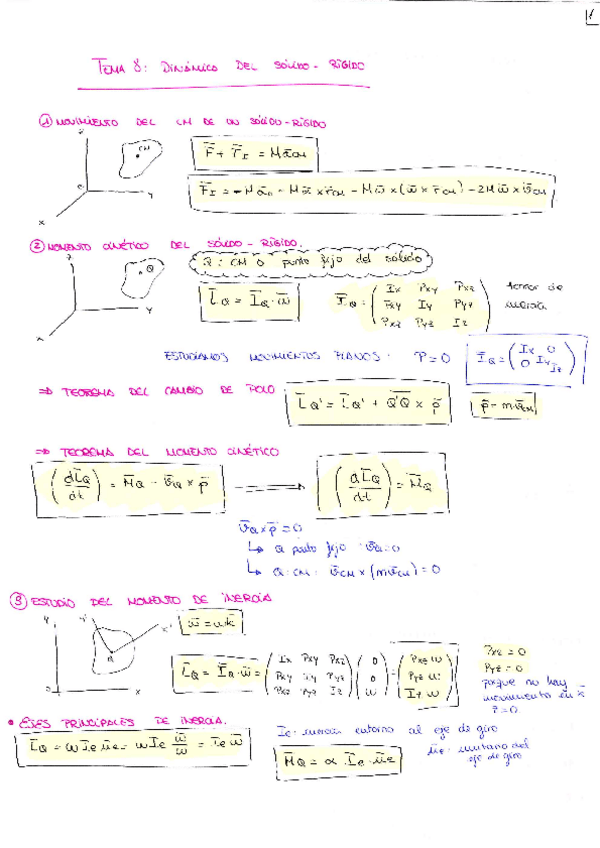 1
TEMA 8: DINÁMICA DEL SÓLIDO-RÍGIDO
① MOVIMIENTO DEL CM DE UN SÓLIDO-RÍGIDO
z CM O y x
F̄ + F̄I = M ā CM
F̄I = -M ā₀ - M ᾱ × r̄CM - M ω̄ × (ω̄ × r̄CM) - 2M ω̄ × v̄CM
② MOMENTO CINÉTICO DEL SÓLIDO-RÍGIDO.
Q: CM O punto fijo del sólido
z Q y x
L̄Q = ĪQ · ω̄
ĪQ = ( Ix Pxy Pxz
Pxy Iy Pyz
Pxz Pyz Iz )
tensor de inercia
ESTUDIAMOS MOVIMIENTOS PLANOS: P=0
ĪQ = ( Ix 0
0 Iy Iz )
⇒ TEOREMA DEL CAMBIO DE POLO
L̄Q' = L̄Q' + Q'Q × p̄
p̄ = m v̄CM
⇒ TEOREMA DEL MOMENTO CINÉTICO
(dL̄Q/dt) = M̄Q - v̄Q × p̄
(dL̄Q/dt) = M̄Q
v̄Q × p̄ = 0
↳ Q punto fijo: v̄Q = 0
↳ Q: CM: v̄CM × (m v̄CM) = 0
③ ESTUDIO DEL MOMENTO DE INERCIA
y y' x' Q O x
ω̄ = ω k̄
L̄Q = ĪQ · ω̄ = ( Ix Pxy Pxz
Pxy Iy Pyz
Pxz Pyz Iz ) ( 0
0
ω ) = ( Pxz ω
Pyz ω
Iz ω )
Pxz = 0
Pyz = 0
porque no hay
movimiento en k̄
P=0
• EJES PRINCIPALES DE INERCIA.
L̄Q = ω Ie ūe = ω Ie ω̄/ω = Ie ω̄
Ie: inercia entorno al eje de giro
M̄Q = α Ie · ūe
ūe: unitario del
eje de giro